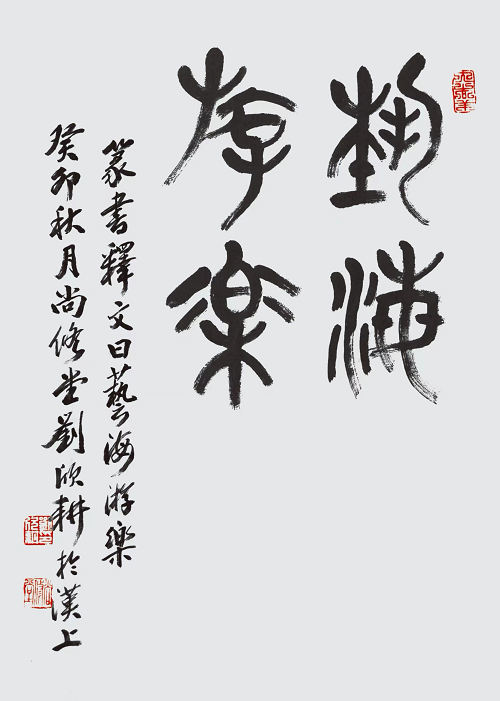 藝海
游樂
篆書釋文曰藝海游樂
癸卯秋月尚修堂劉欣耕於漢上